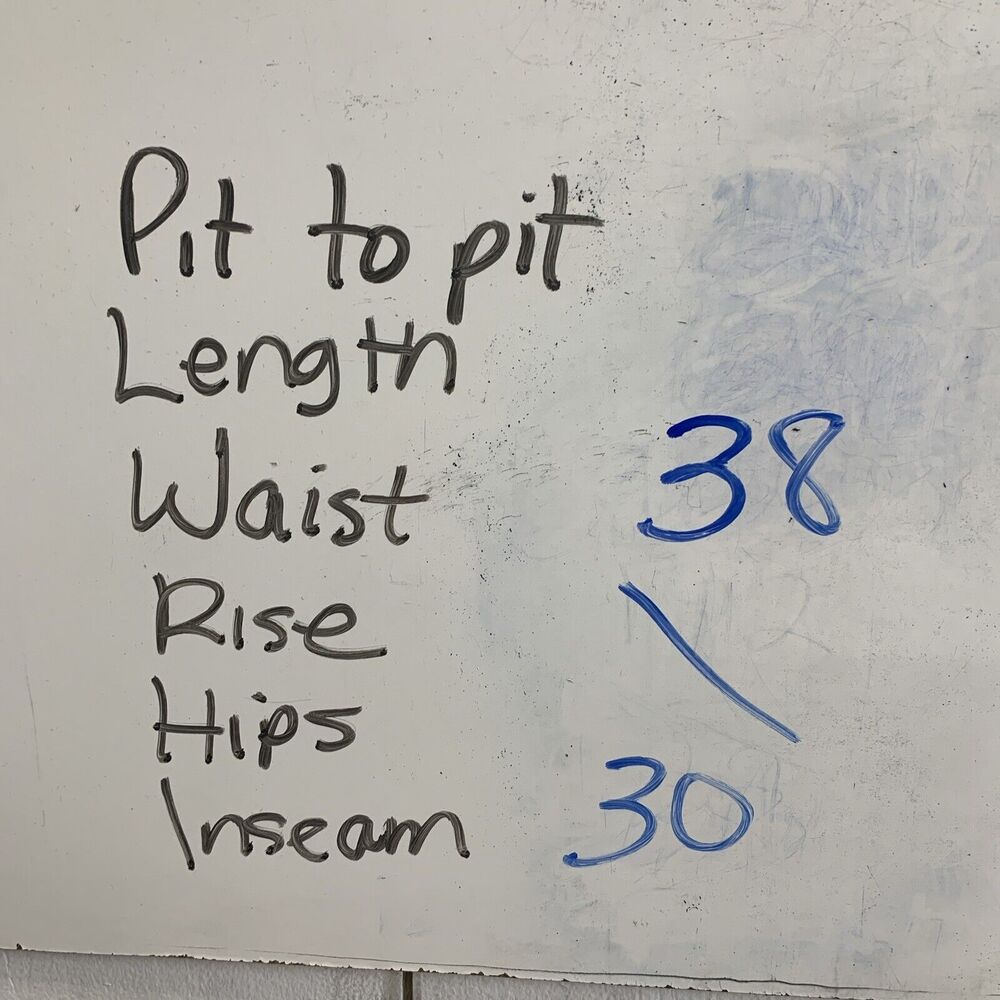 Pit to pit
Length
Waist 38
Rise \
Hips
Inseam 30